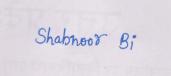 Shabnoor Bi